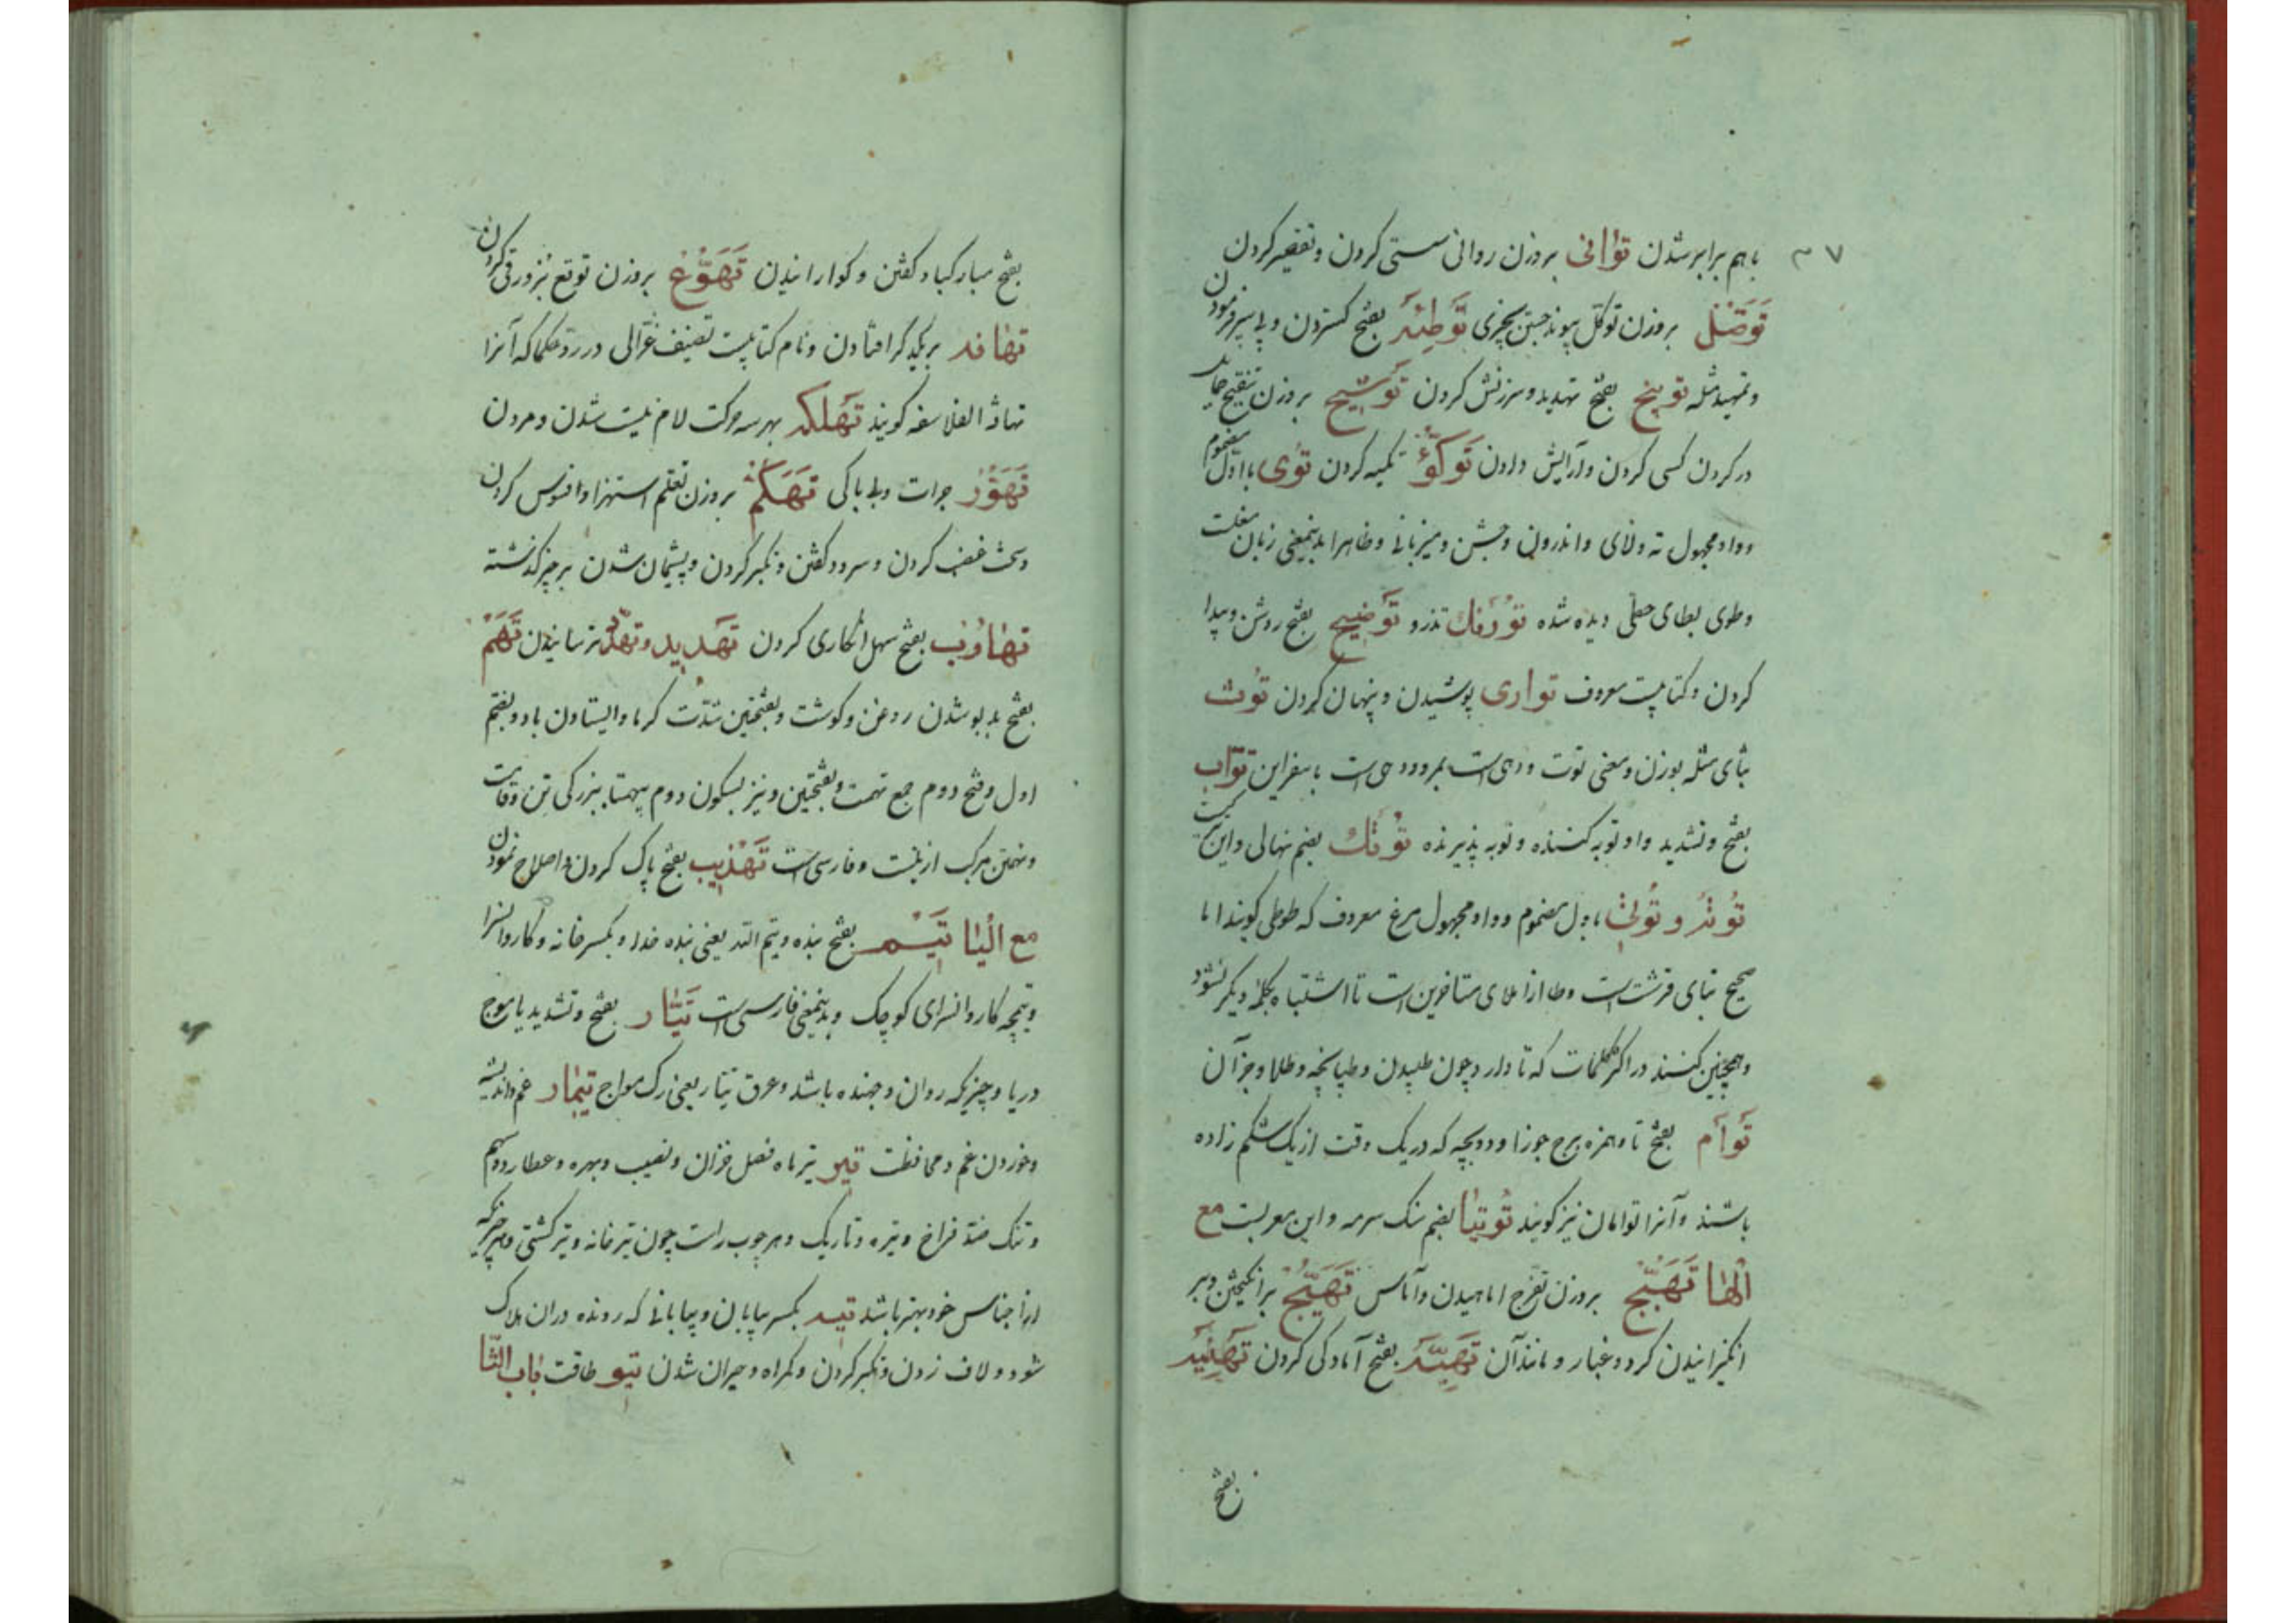 ۳۷
باهم برابر شدن توانی بروزن روانی سستی کردن و تقصیر کردن
توصل بروزن توکل پیوند جستن بچیزی توطئه بفتح کستردن و پی سپر فرمودن
و تمهید مثله توبیخ بفتح تهدید و سرزنش کردن توشیح بروزن تنقیح حمایل
در کردن کسی کردن و آرایش دادن توکؤ تکیه کردن توی با اول مضموم
و واو مجهول ته و لای و اندرون و جشن و میزبانی و ظاهرا بدینمعنی زبان مغلست
و طوی بطای حطی دیده شده تورنک تذرو توضیح بفتح روشن و پیدا
کردن و کتابیست معروف تواری پوشیدن و پنهان کردن توث
بثای مثلثه بوزن و معنی توت و دهی است بمرو و دهی است باسفراین تواب
بفتح و تشدید واو توبه کننده و توبه پذیرنده توتک بضم نهالی و این
توته و توتی باول مضموم و واو مجهول مرغ معروف که طوطی کویند اما
صحیح بتای قرشت است و طا از املای متاخرین است تا اشتباه بکلمه دیکر نشود
و همچنین کنند در اکثر کلمات که تا دارد چون طپیدن و طپانچه و طلا و جز آن
توأم بفتح تا و همزه برج جوزا و دو بچه که در یک وقت از یک شکم زاده
باشند و آنرا توامان نیز کویند توتیا بضم سنک سرمه و این معربست مع
الها تهبج بروزن تفرج اماهیدن و آماس تهیج برانکیختن و بر
انکیزانیدن کرد و غبار و مانند آن تهیه بفتح آمادکی کردن تهنیه
بفتح
بفتح مبارکباد کفتن و کوارانیدن تهوع بروزن توقع بزور قی کردن
تهافه بر یکدیکر افتادن و نام کتابیست تصنیف غزالی در رد حکما که آنرا
تهافة الفلاسفه کویند تهلکه بهر سه حرکت لام نیست شدن و مردن
تهور جرات و بی باکی تهکم بروزن تعلم استهزا و افسوس کردن
و سخت غضب کردن و سرود کفتن و تکبر کردن و پشیمان شدن بر چیز کذشته
تهاون بفتح سهل انکاری کردن تهدید و تهدد ترسانیدن تهم
بفتح بدبو شدن روغن و کوشت و بفتحتین شدت کرما و ایستادن باد و بضم
اول و فتح دوم جمع تهمت و بفتحتین و نیز بسکون دوم بیهمتا ببزرکی تن و قامت
و تهمتن مرکب ازینست و فارسی است تهذیب بفتح پاک کردن و اصلاح نمودن
مع الیا تیم بفتح بنده و تیم الله یعنی بنده خدا و بکسر خانه و کاروانسرا
و تیمچه کاروانسرای کوچک و بدینمعنی فارسی است تیار بفتح و تشدید یا موج
دریا و چیزیکه روان و جهنده باشد و عرق تیار یعنی رک مواج تیمار غم و اندیشه
و خوردن غم و محافظت تیر تیر ماه فصل خزان و نصیب و بهره و عطارد و سهم
و تنک ضد فراخ و تیره و تاریک و هر چوب راست چون تیر خانه و تیر کشتی و هر چیزیکه
از اجناس خود بهتر باشد تیه بکسر بیابان و بیابانی که رونده در ان هلاک
شود و لاف زدن و تکبر کردن و کمراه و حیران شدن تیو طاقت باب الثا